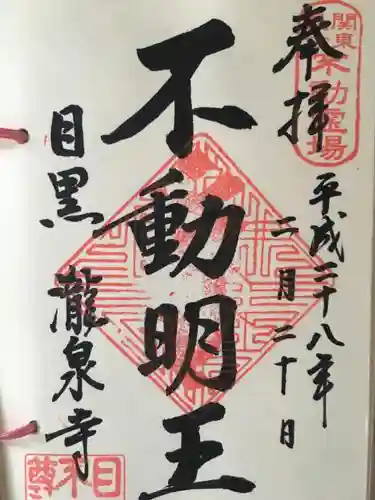 奉拝
関東
不動霊場
平成二十八年
二月二十日
不動明王
目黒
瀧泉寺
目不尊